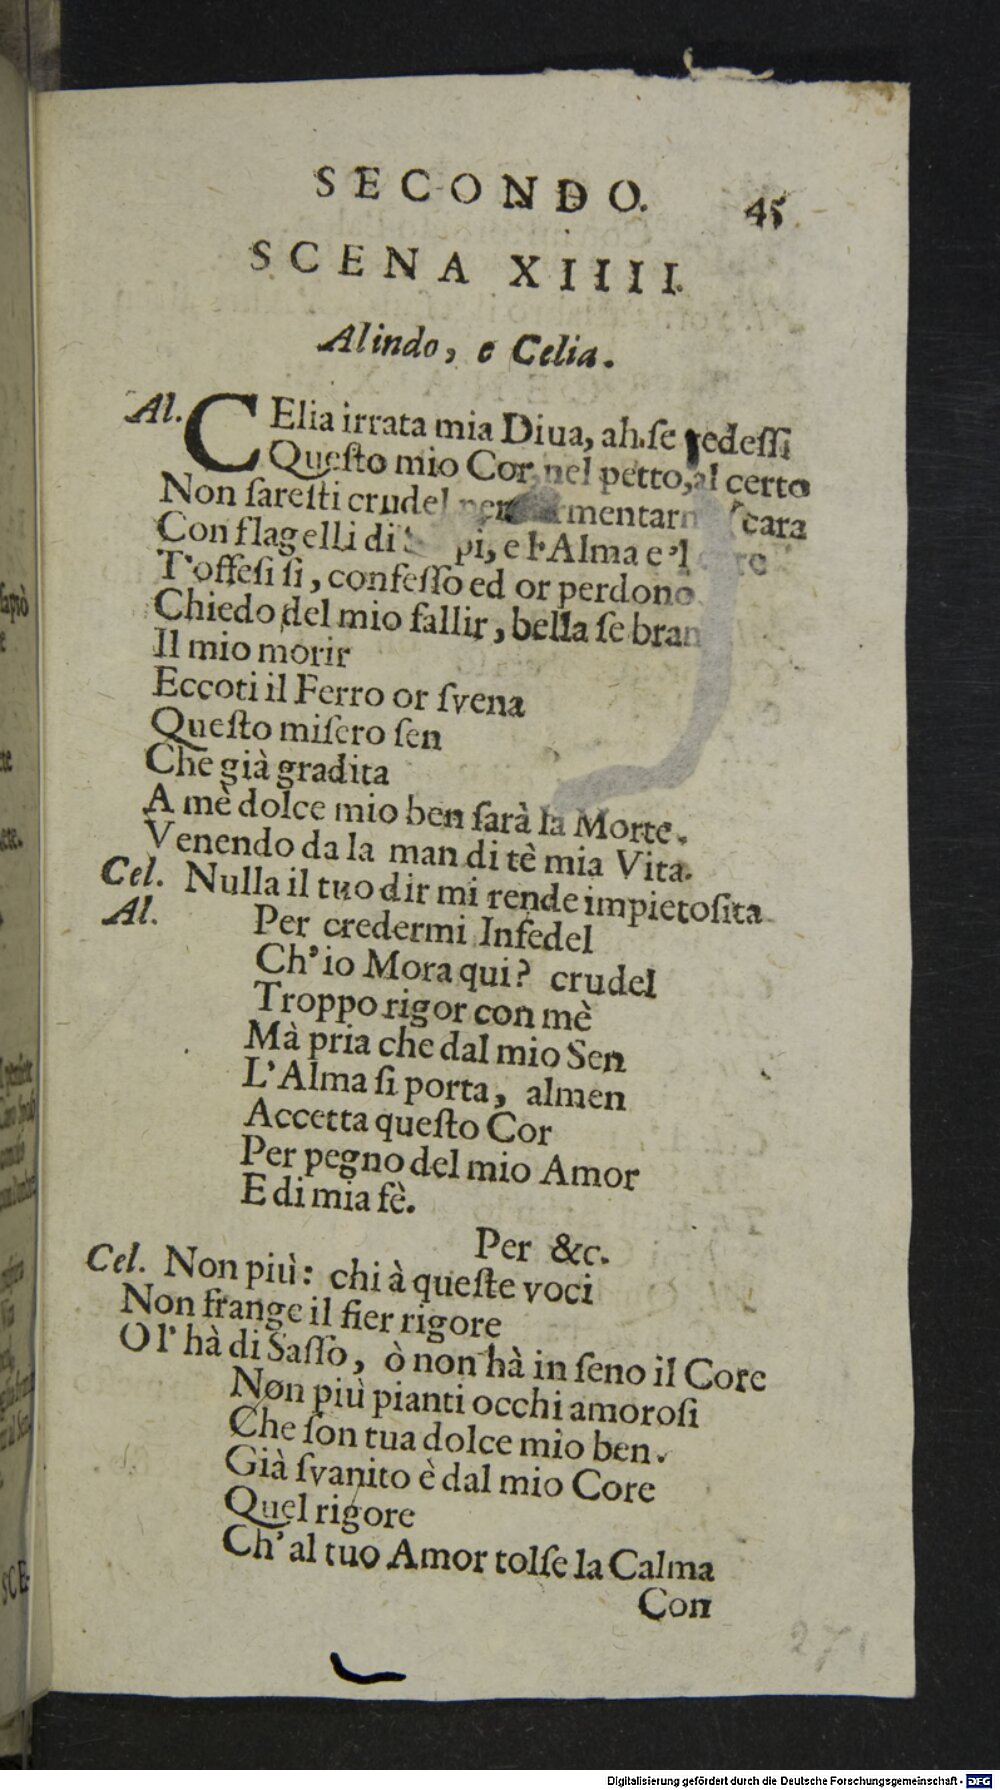 SECONDO. 45
SCENA XIIII.
Alindo, e Celia.
Al. CElia irrata mia Diua, ah.ſe vedeſſi
Queſto mio Cor, nel petto, al certo
Non ſareſti crudel cara
Con flagelli di e l'Alma e'l
T'offeſi ſi, confeſſo ed or perdono
Chiedo del mio fallir, bella ſe
Il mio morir
Eccoti il Ferro or ſvena
Queſto miſero ſen
Che già gradita
A mè dolce mio ben ſarà la Morte.
Venendo da la man di tè mia Vita.
Cel. Nulla il tuo dir mi rende impietoſita
Al. Per credermi Infedel
Ch'io Mora qui? crudel
Troppo rigor con mè
Mà pria che dal mio Sen
L'Alma ſi porta, almen
Accetta queſto Cor
Per pegno del mio Amor
E di mia fè.
Per &c.
Cel. Non più: chi à queſte voci
Non frange il fier rigore
O l'hà di Saſſo, ò non hà in ſeno il Core
Non più pianti occhi amoroſi
Che ſon tua dolce mio ben.
Già ſvanito è dal mio Core
Quel rigore
Ch'al tuo Amor tolſe la Calma
Con
27
Digitalisierung gefördert durch die Deutsche Forschungsgemeinschaft - DFG